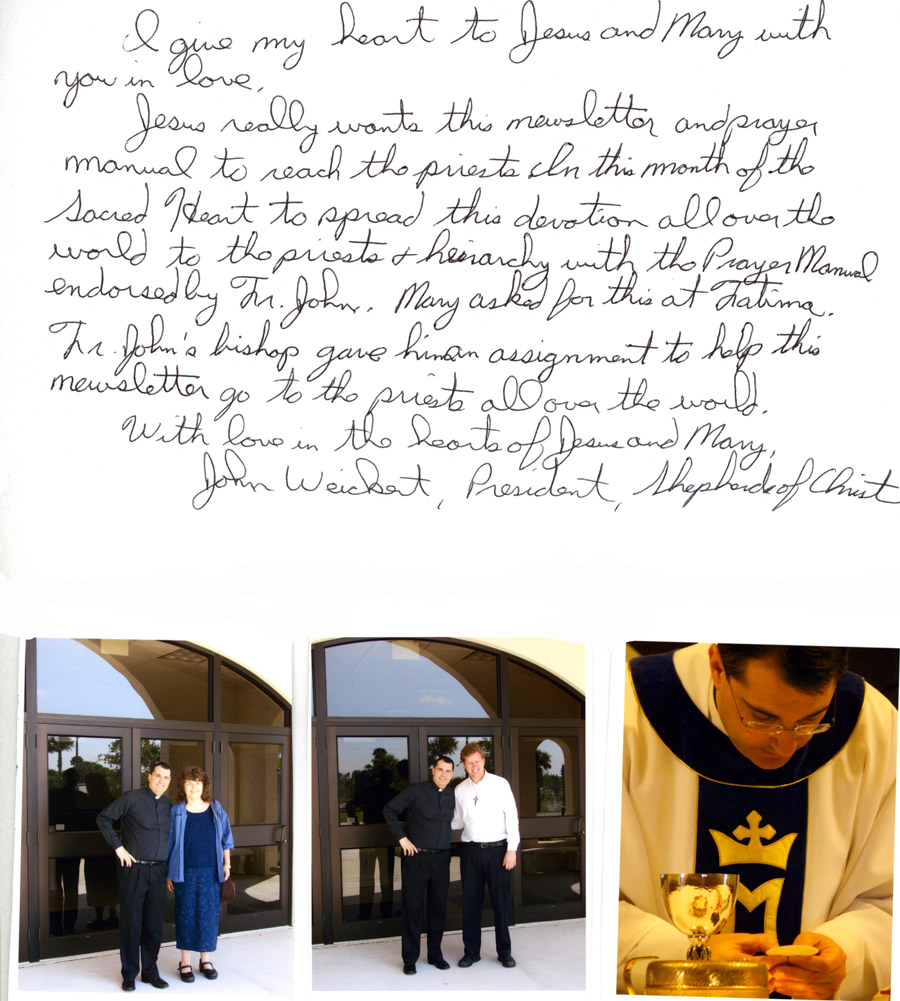 I give my heart to Jesus and Mary with
you in love.
Jesus really wants this newsletter and prayer
manual to reach the priests In this month of the
Sacred Heart to spread this devotion all over the
world to the priests + heirarchy with the Prayer Manual
endorsed by Fr. John. Mary asked for this at Fatima.
Fr. John's bishop gave him an assignment to help this
newsletter go to the priests all over the world.
With love in the hearts of Jesus and Mary,
John Weickert, President, Shepherds of Christ